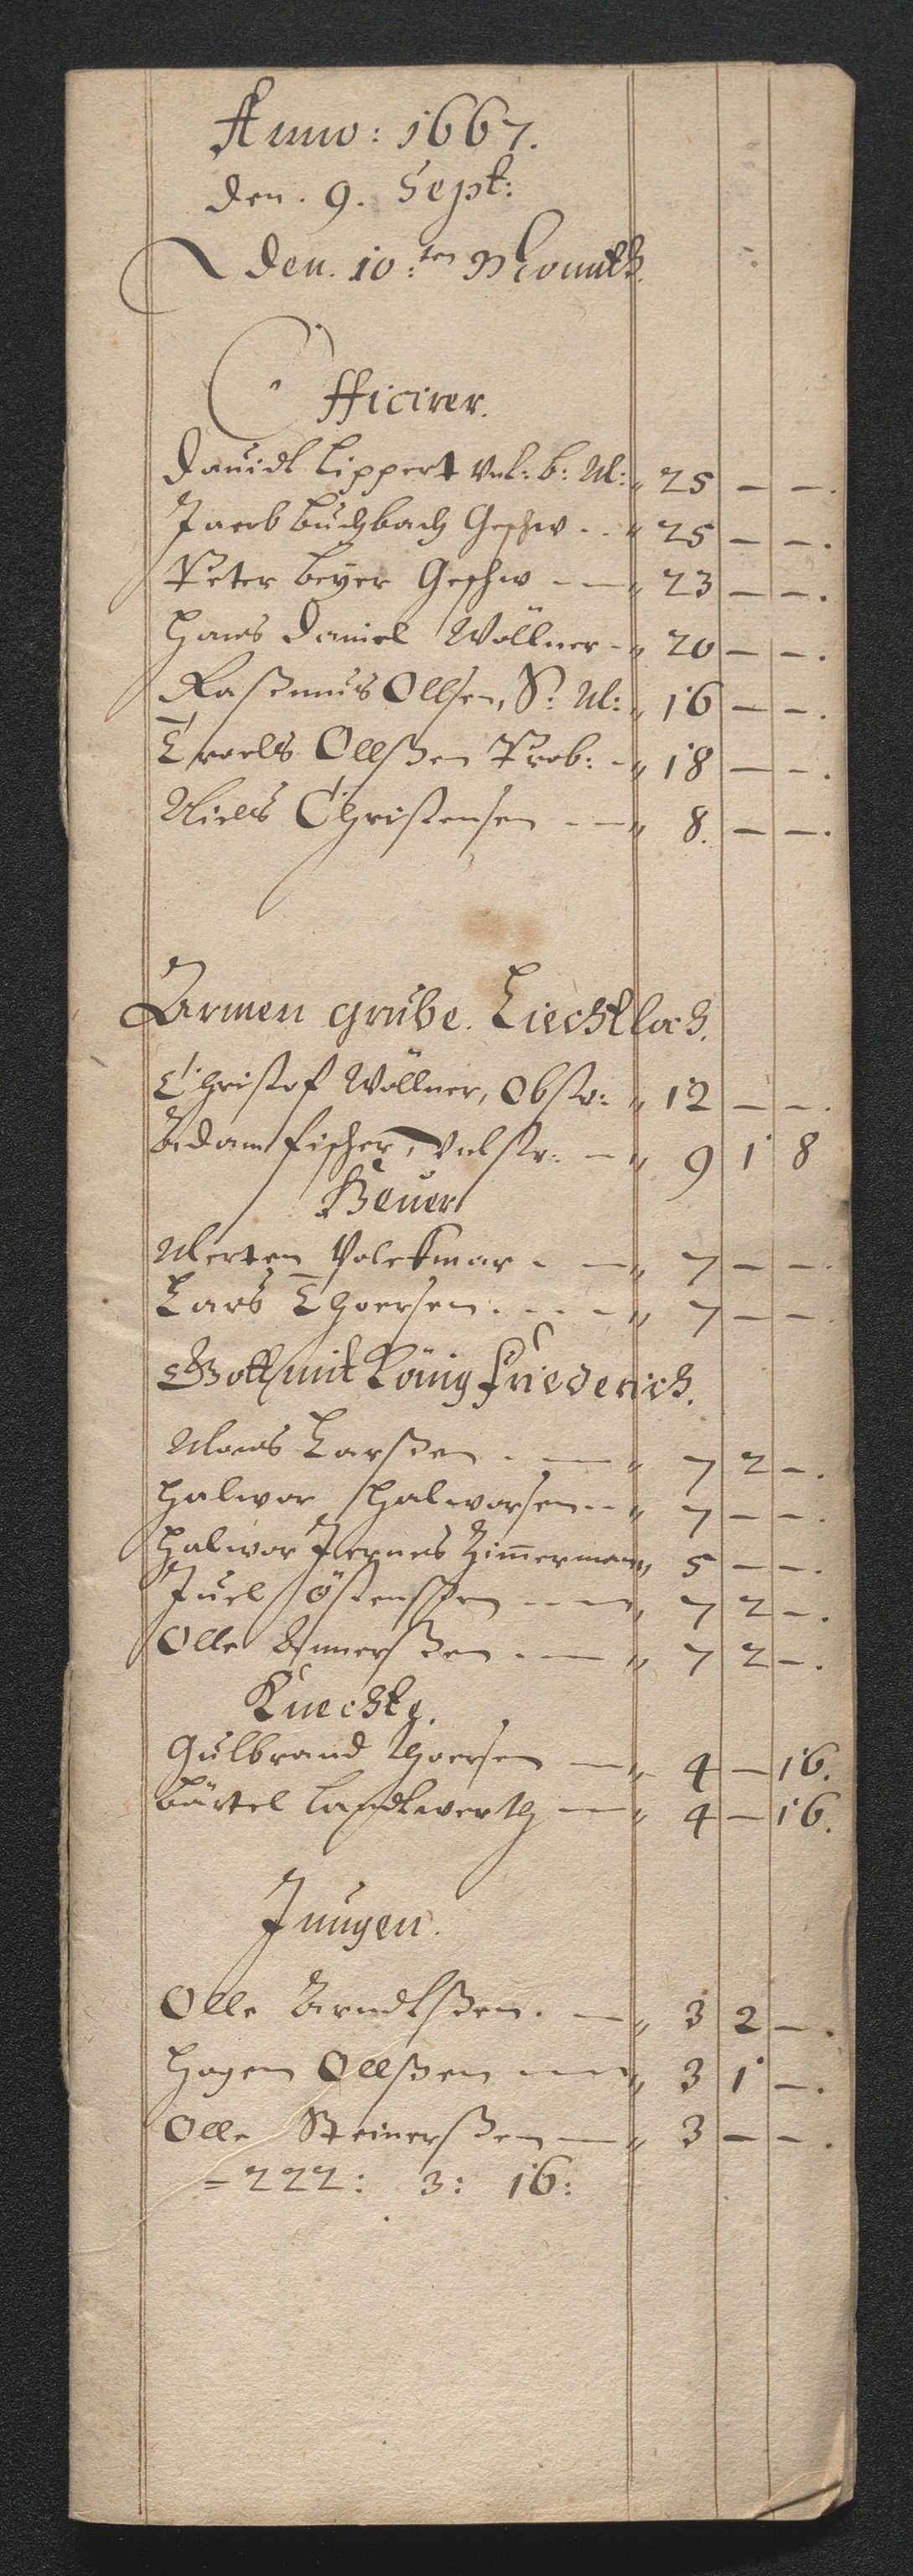 Anno: 1667.
den. 9. Sept:
den. 10:ten Monath.
Officirer.
Dauidt Lippert Unt: b: M: „ 25 — —.
Jacob Buchbach Geschw - - „ 25 — —.
Peter Beyer Geschw - — „ 23 — —.
Hans Daniel Wöllner - „ 20 — —.
Raßmus Ollsen, S: M: „ 16 — —.
Troels Ollßen Prob: - „ 18 — —.
Niels Christensen - — „ 8. — —.
Armen grube. Liechtloch.
Christof Wöllner, Obstr: „ 12 — —.
Adam Fischer, Untstr: — „ 9 1 8
Heuer
Merten Volckmar - — „ 7 — —.
Lars Thorsen - - - „ 7 — —.
Gott mit König Friederich.
Mons Larßen - — „ 7 2 —.
Halvor Halvorsen - - „ 7 — —.
Halvor Zimmerman „ 5 — —.
Juel Östensßen - - — „ 7 2 —.
Olle Gunnerßen - — „ 7 2 —.
Knechte.
Gulbrand Thorsen — „ 4 — 16.
Bärtel Landtwerth — „ 4 — 16.
Jungen.
Olle Arndtßen. — „ 3 2 —.
Hagen Ollßen - — „ 3 1 —.
Olle Steinerßen — „ 3 — —.
= 222: 3: 16: